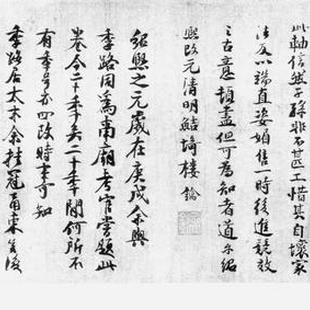 此軸信然子孫非不甚工惜其自壞家
法反以端直姿媚售一時後進競效
之古意頓盡但可為知者道尔紹
熙改元清明鮚埼樓鑰
紹熙之元歲在庚戌余與
季路同為南廟考官嘗題此
卷今二十年矣二十年間何所不
有年号亦四改時事可知
季路居太末余挂冠甬東